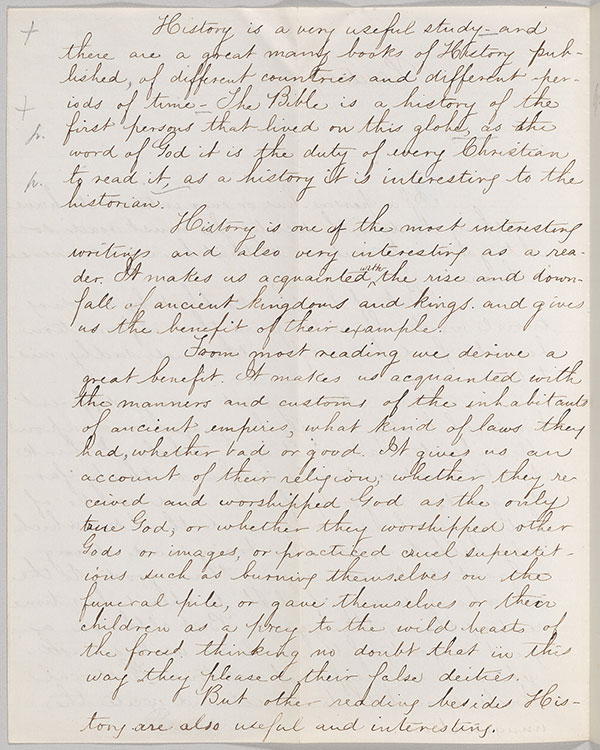 History is a very useful study – and
there are a great many books of History pub-
lished, of different countries and different per-
iods of time – The Bible is a history of the
first persons that lived on this globe, as the
word of God it is the duty of every Christian
to read it, as a history it is interesting to the
historian.
History is one of the most interesting
writings and also very interesting as a rea-
der. It makes us acquainted with the rise and down-
fall of ancient kingdoms and kings. and gives
us the benefit of their example.
From most reading we derive a
great benefit. It makes us acquainted with
the manners and customs of the inhabitants
of ancient empires, what kind of laws they
had, whether bad or good. It gives us an
account of their religion; whether they re-
ceived and worshipped God as the only
true God, or whether they worshipped other
Gods or images, or practiced cruel superstit-
ions such as burning themselves on the
funeral pile, or gave themselves or their
children as a prey to the wild beasts of
the forest thinking no doubt that in this
way they pleased their false deities.
But other reading besides His-
tory are also useful and interesting.